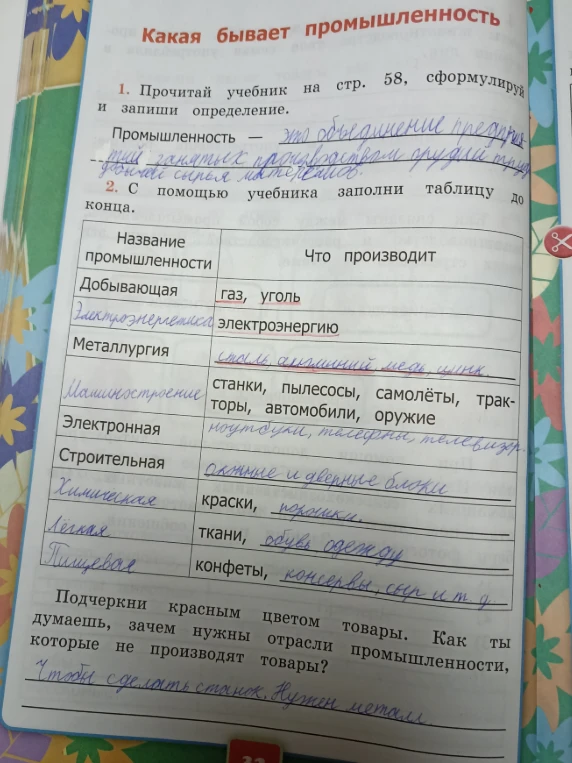 Какая бывает промышленность
1. Прочитай учебник на стр. 58, сформулируй
и запиши определение.
Промышленность — это объединение предприя
тий занятых производством орудий труда
добычей сырья материалов.
2. С помощью учебника заполни таблицу до
конца.
Название промышленности
Что производит
Добывающая
газ, уголь
Электроэнергетика
электроэнергию
Металлургия
сталь, алюминий медь, цинк.
Машиностроение
станки, пылесосы, самолёты, трак-
торы, автомобили, оружие
Электронная
ноутбуки, телефоны, телевизор.
Строительная
окжные и дверные блоки
Химическая
краски, порошки.
Лёгкая
ткани, обувь одежду
Пищевая
конфеты, консервы, сыр и т. д
Подчеркни красным цветом товары. Как ты
думаешь, зачем нужны отрасли промышленности,
которые не производят товары?
Чтобы сделать станок, Нужен металл